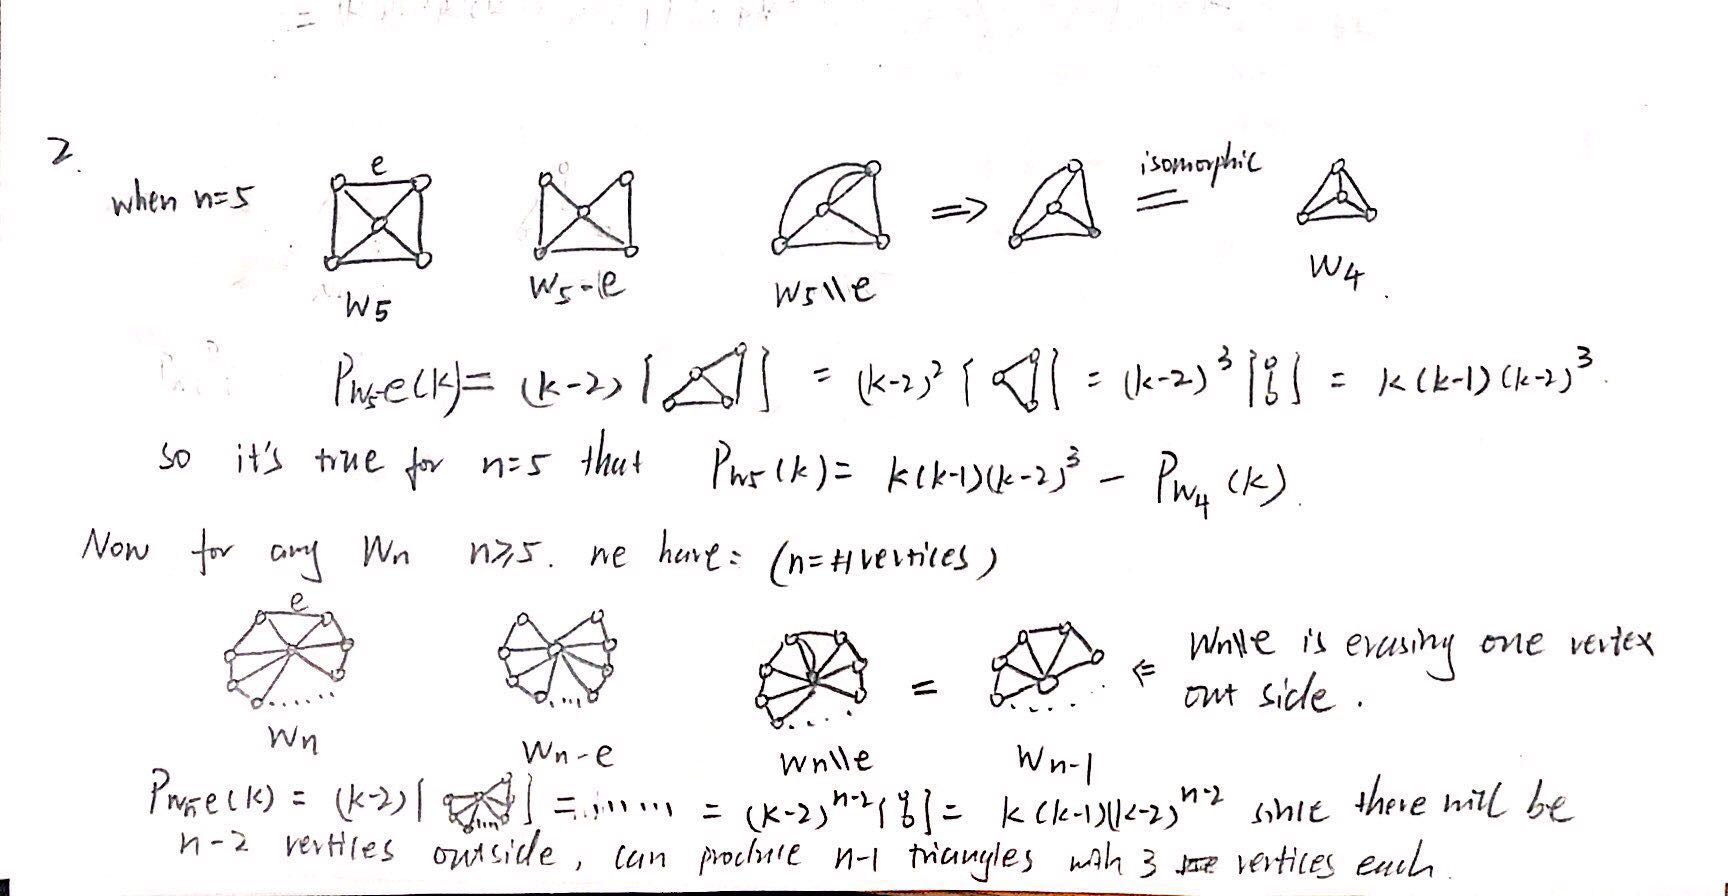 2.
when n=5
e
isomorphic
W5
W5-e
W5\\e
=>
=
W4.
PW5-e(k)= (k-2)[ ] = (k-2)² [ ] = (k-2)³ [ ] = k(k-1)(k-2)³.
so it's true for n=5 that PW5(k)= k(k-1)(k-2)³ - PW4(k).
Now for any Wn n≥5. we have: (n=#vertices)
e
= ⇐ Wn\\e is erasing one vertex
out side.
Wn
Wn-e
Wn\\e
Wn-1
PWn-e(k) = (k-2)[ ] = ...... = (k-2)ⁿ⁻²[ ] = k(k-1)(k-2)ⁿ⁻² since there will be
n-2 vertices outside, can produce n-1 triangles with 3 vertices each.